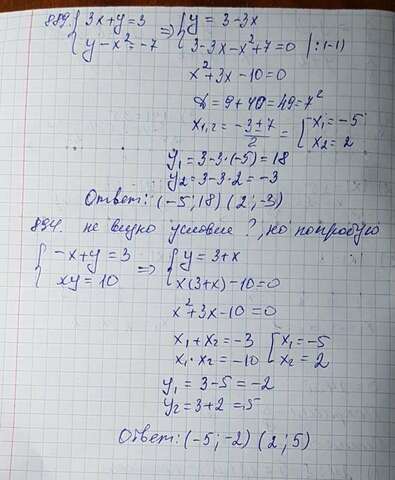 889 { 3x+y=3 => { y = 3-3x
y-x²=-7 3-3x-x²+7=0 |:(-1)
x²+3x-10=0
D = 9+40=49=7²
x₁,₂ = (-3±7)/2 = [ x₁=-5
x₂=2
y₁=3-3·(-5)=18
y₂=3-3·2=-3
Ответ: (-5;18) (2;-3)
894. не видно условие ?, но попробую
{ -x+y=3 => { y=3+x
xy=10 x(3+x)-10=0
x²+3x-10=0
x₁+x₂=-3 [ x₁=-5
x₁·x₂=-10 x₂=2
y₁=3-5=-2
y₂=3+2=5
Ответ: (-5;-2) (2;5)